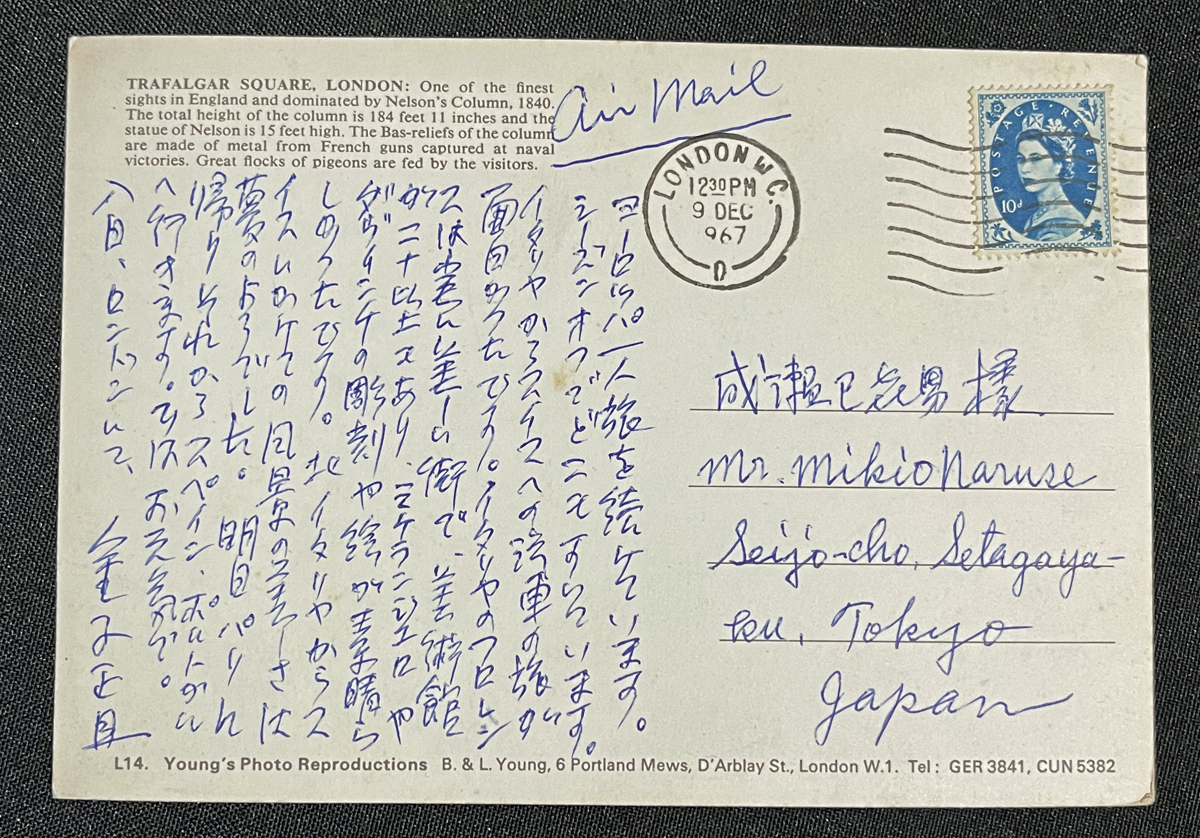 TRAFALGAR SQUARE, LONDON: One of the finest
sights in England and dominated by Nelson's Column, 1840.
The total height of the column is 184 feet 11 inches and the
statue of Nelson is 15 feet high. The Bas-reliefs of the column
are made of metal from French guns captured at naval
victories. Great flocks of pigeons are fed by the visitors.
Air Mail
LONDON W.C.
12 30 PM
9 DEC
967
D
POSTAGE REVENUE
10d
ヨーロッパ一人旅を続けています。
シーズンオフでどこもすいています。
イタリヤからスイスへの汽車の旅が
面白かったです。イタリヤのフロレン
スは実に美しい街で、美術館
が二十以上もあり、ミケランジェロや
ダヴィンチの彫刻や絵が素晴ら
しかったです。北イタリヤからス
イスにかけての風景の美しさは
夢のようでした。明日パリに
帰りそれからスペイン、ポルトガル
へ行きます。ではお元気で。
八日、ロンドンにて、 金子正且
成瀬巳喜男様
Mr. Mikio Naruse
Seijo-cho, Setagaya-
ku, Tokyo
Japan
L14. Young's Photo Reproductions B. & L. Young, 6 Portland Mews, D'Arblay St., London W.1. Tel: GER 3841, CUN 5382